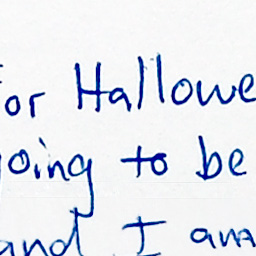 For Hallowe
going to be
and I am